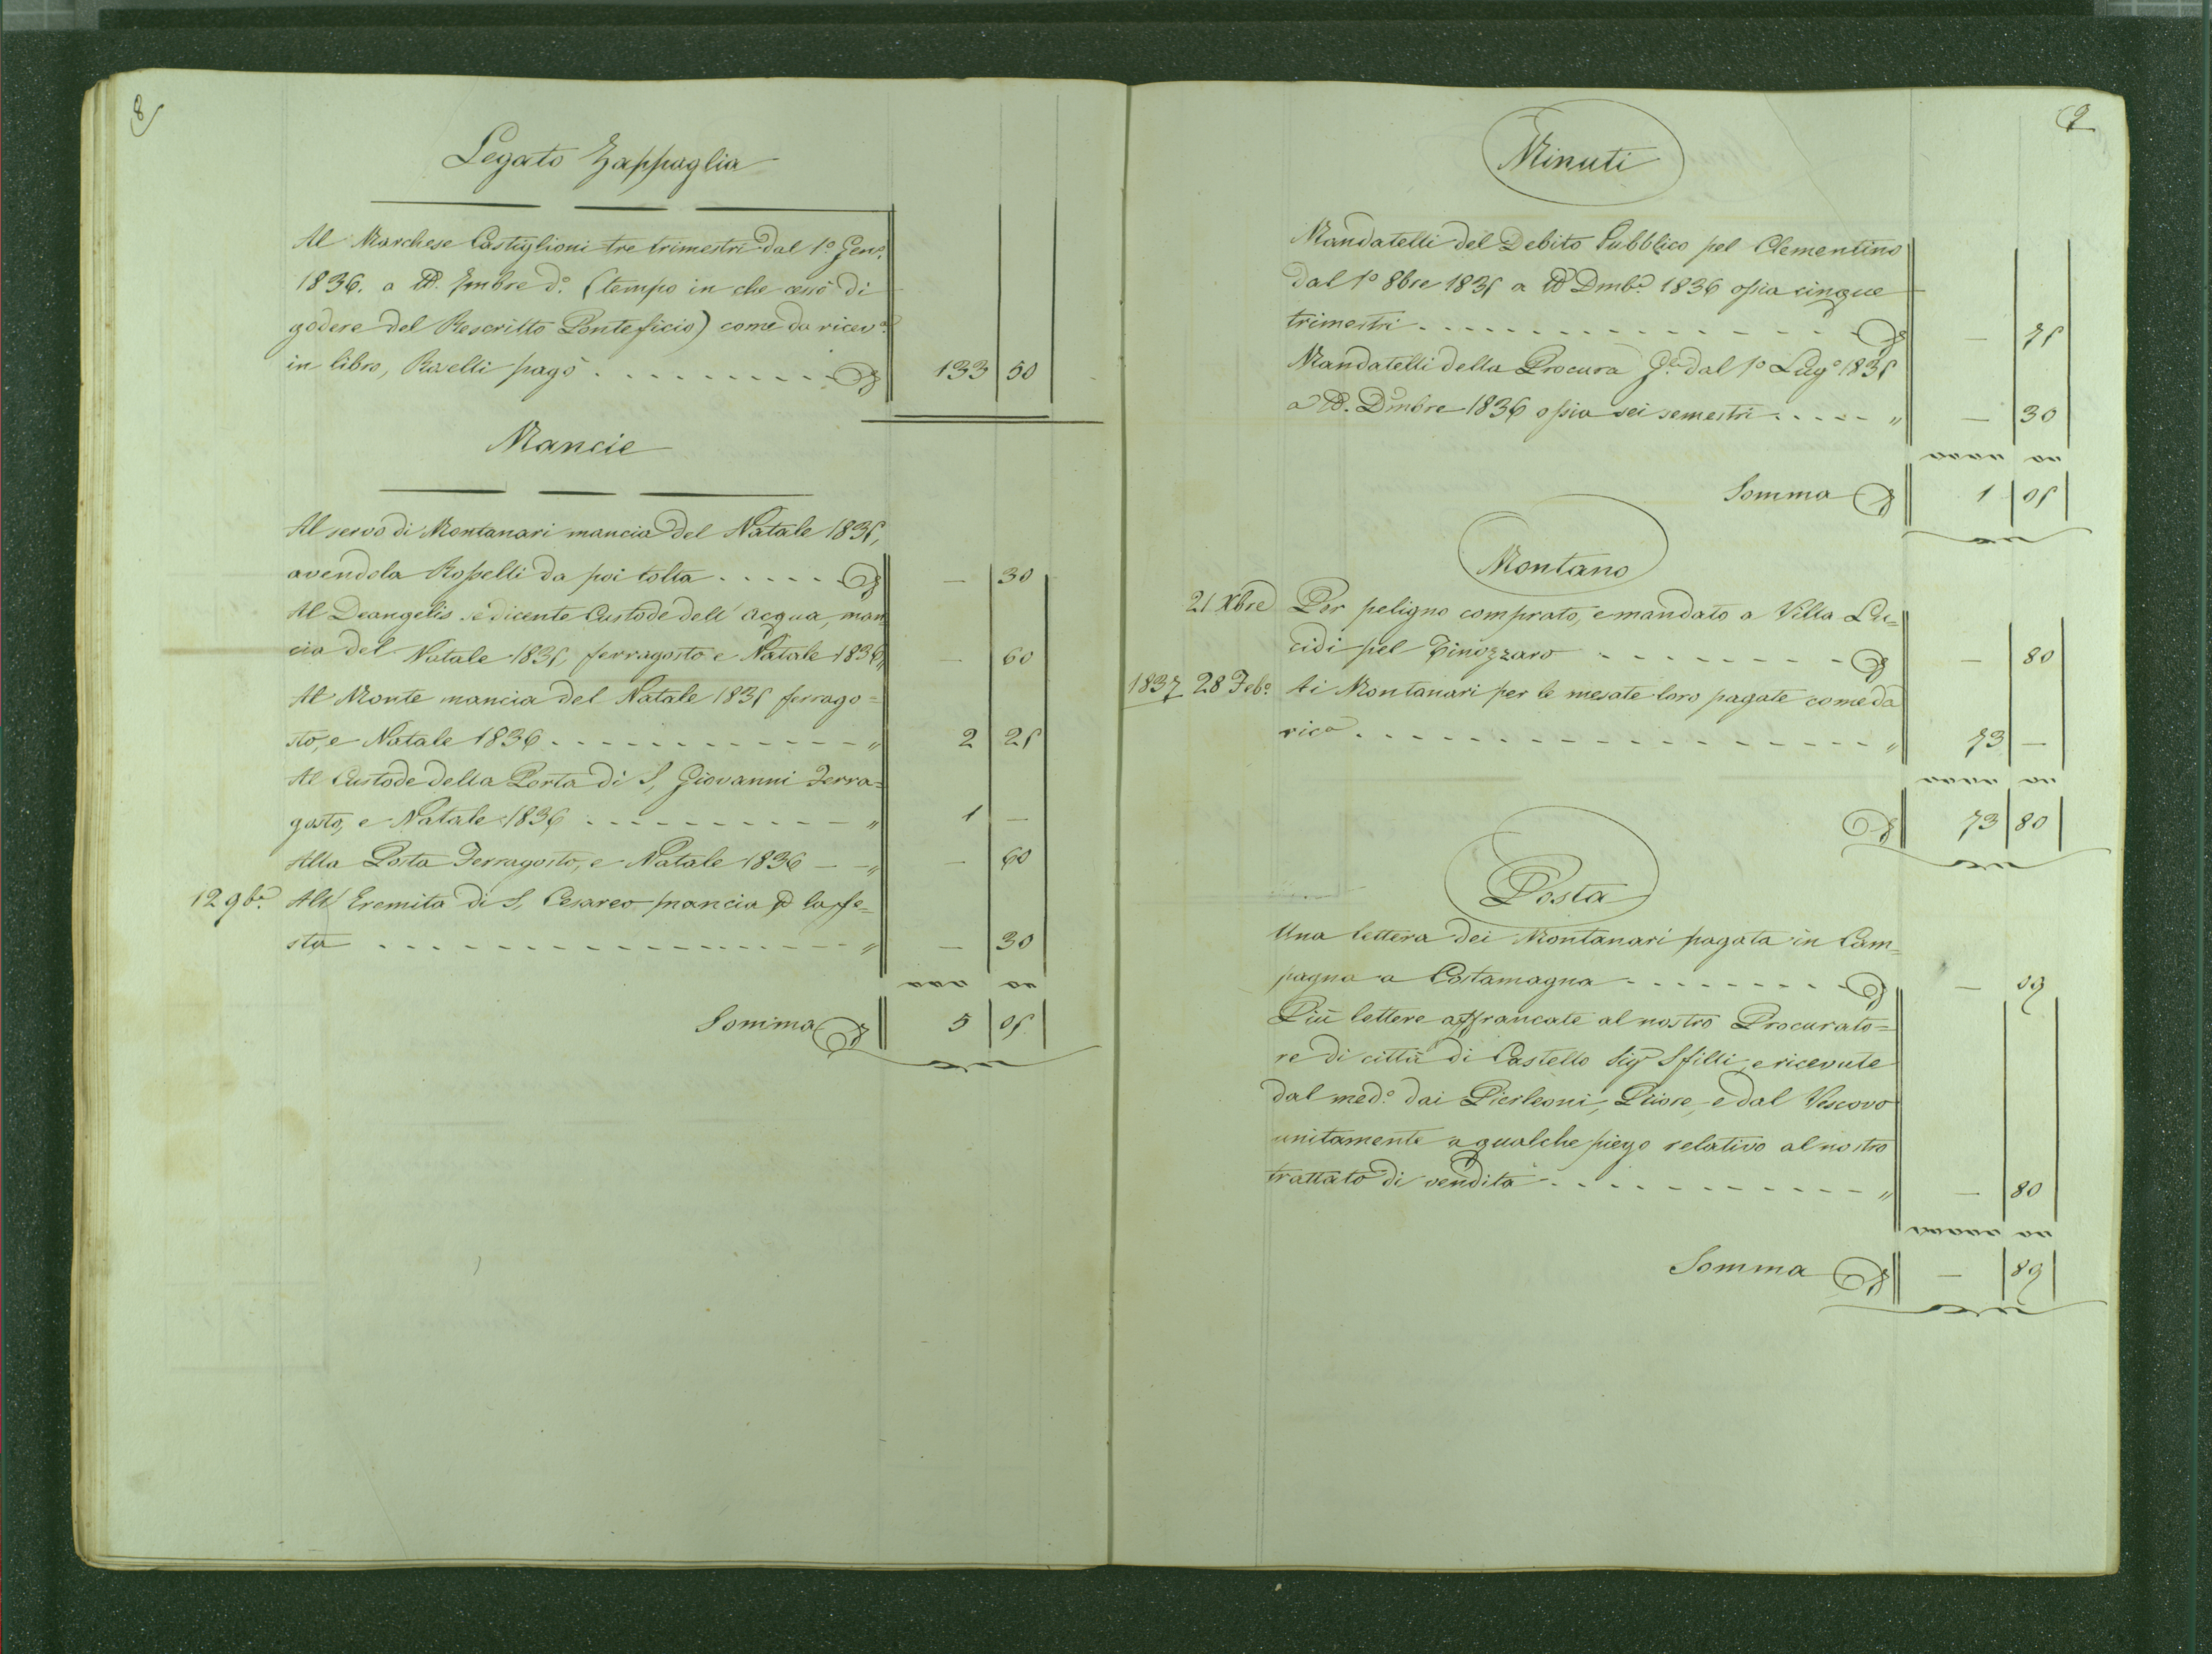 8
Legato Zappaglia
Al Marchese Castiglioni tre trimestri dal 1° Gen.°
1836. a tt. 7mbre d.° (tempo in che cessò di
godere del Rescritto Pontificio) come da ricev.a
in libro, Roselli pagò . . . . . . . . . . 133 50
Mancie
Al servo di Montanari mancia del Natale 1835,
avendola Rosselli da poi tolta . . . . . — 30
Al Deangelis sedicente Custode dell' acqua, man=
cia del Natale 1835, ferragosto e Natale 1836 " — 60
Al Monte mancia del Natale 1835 ferrago=
sto, e Natale 1836 . . . . . . . . . . . " 2 25
Al Custode della Porta di S. Giovanni Ferra=
gosto, e Natale 1836 . . . . . . . . . . " 1 —
Alla Posta Ferragosto, e Natale 1836 — — " — 60
12 9b.e All' Eremita di S. Cesareo mancia p la fe=
sta . . . . . . . . . . . . . . . . . . " — 30
Somma 5 05
9
Minuti
Mandatelli del Debito Pubblico pel Clementino
dal 1° 8bre 1835 a tt Dmb.e 1836 ossia cinque
trimestri . . . . . . . . . . . . . . . — 75
Mandatelli della Procura G.le dal 1° Lug.° 1835
a tt. Dmbre 1836 ossia sei semestri . . . . " — 30
Somma 1 05
Montano
21 Xbre Per peligno comprato, e mandato a Villa Lu=
cidi pel Tinozzaro . . . . . . . . . — 80
1837 28 Feb.° Ai Montanari per le mesate loro pagate come da
ric.a . . . . . . . . . . . . . . . . . . " 73 —
73 80
Posta
Una lettera dei Montanari pagata in Cam=
pagna a Costamagna . . . . . . . . . — 09
Più lettere affrancate al nostro Procurato=
re di città di Castello Sig.r e ricevute
dal med.° dai Pierleoni, Priore, e dal Vescovo
unitamente a qualche piego relativo al nostro
trattato di vendita . . . . . . . . . . . . " — 80
Somma — 89